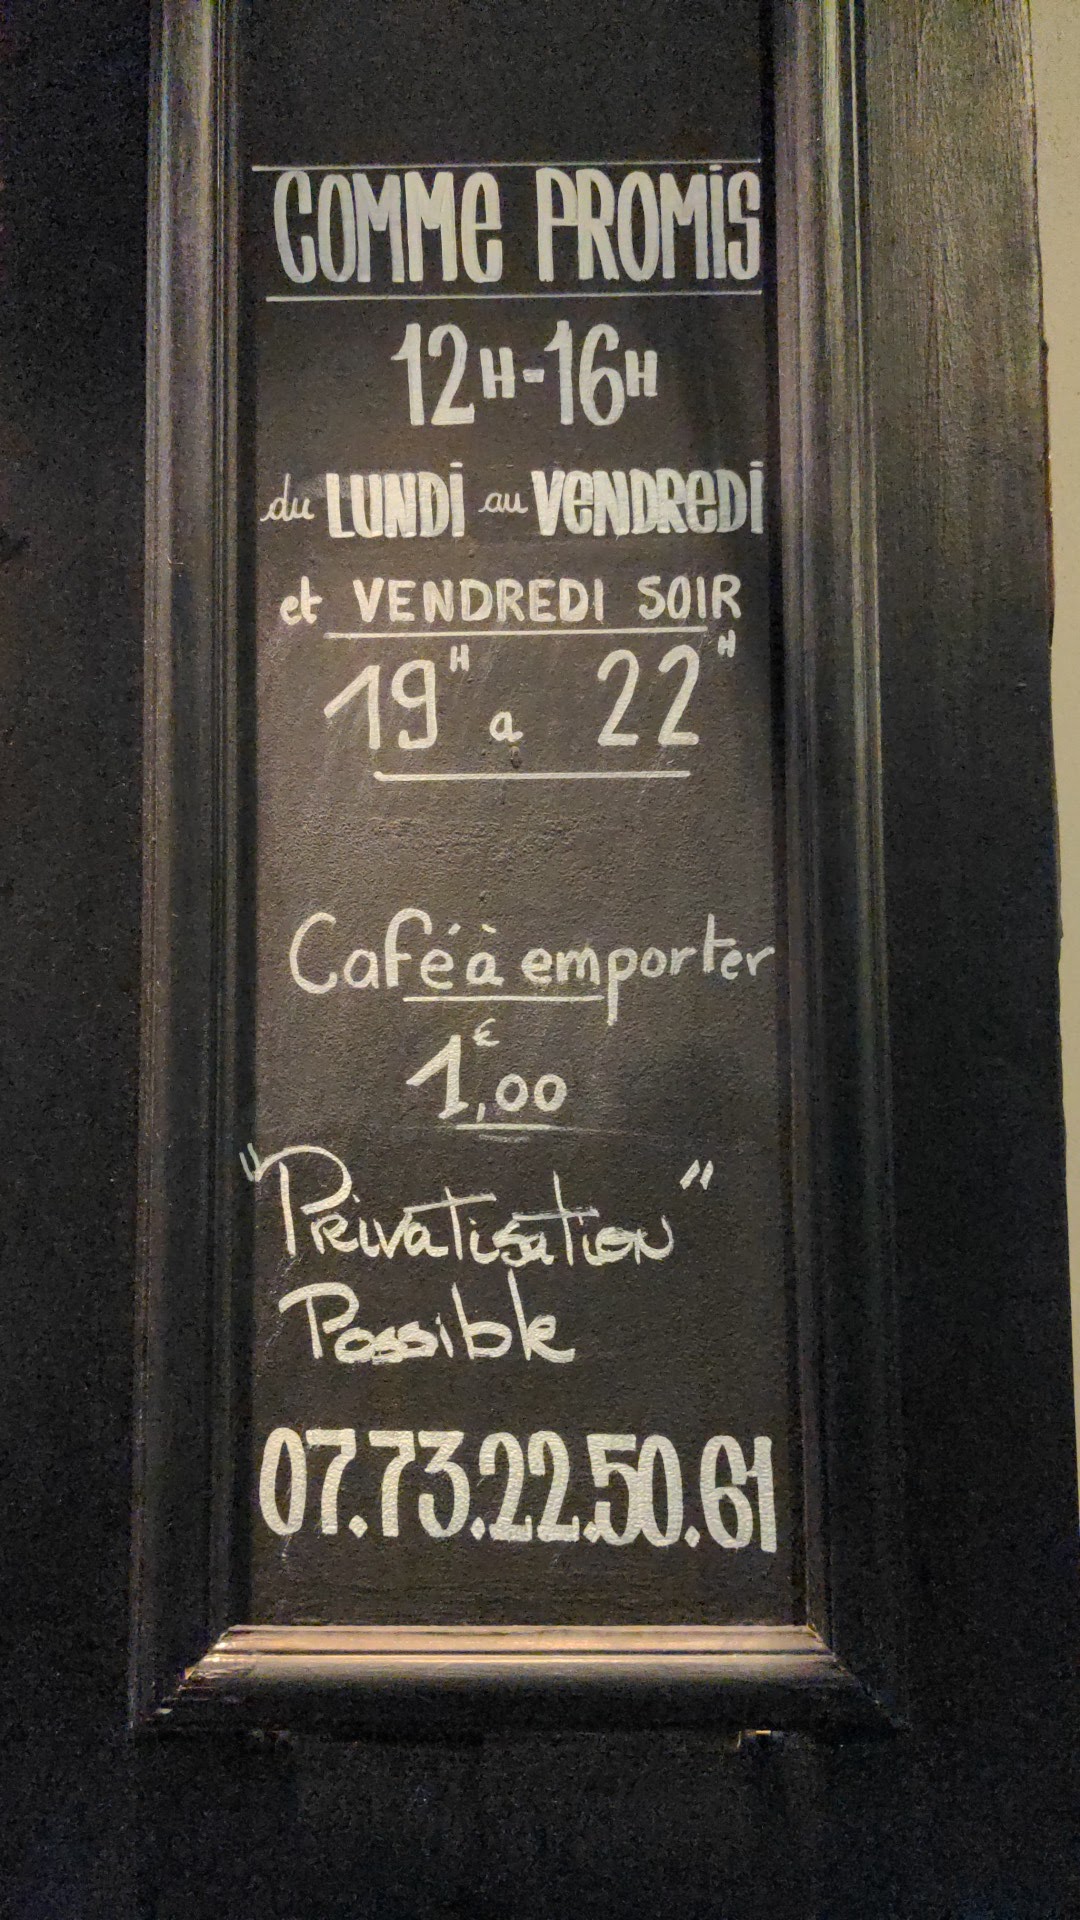 COMME PROMIS
12H-16H
du LUNDI au VENDREDI
et VENDREDI SOIR
19H a 22H
Café à emporter
1,€00
"Privatisation"
Possible
07.73.22.50.61